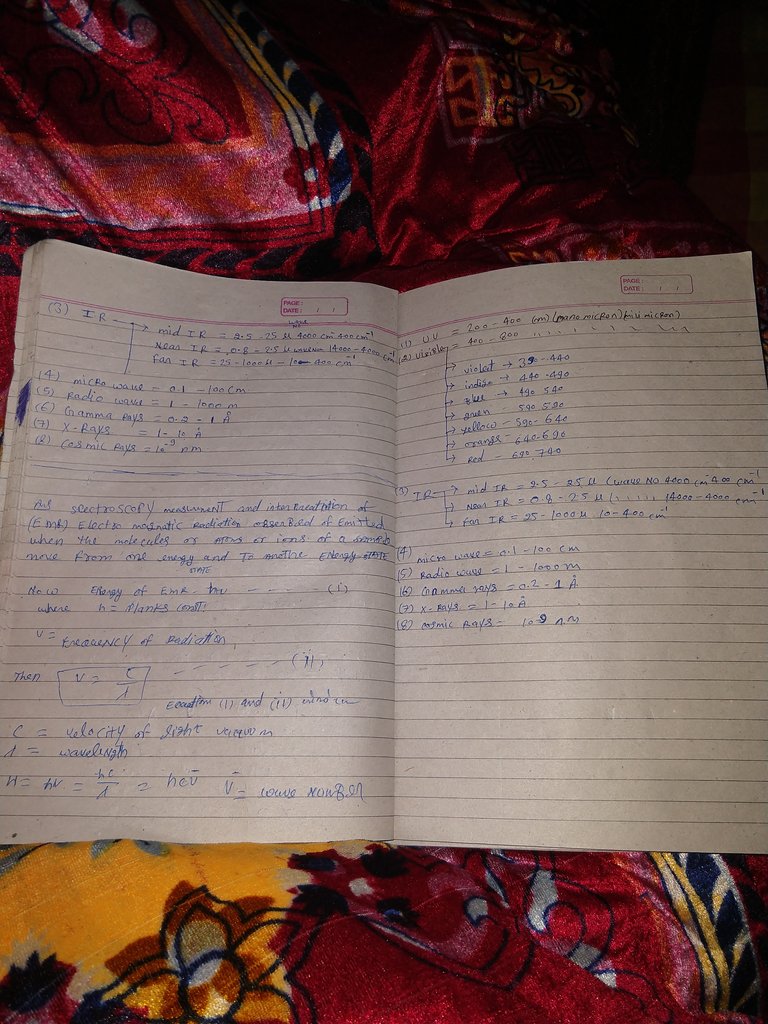 PAGE:
DATE: / /
(3) IR
wave no
mid IR = 2.5 - 25 µ 4000 cm⁻¹ 400 cm⁻¹
Near IR = 0.8 - 2.5 µ wave no 14000 - 4000 cm⁻¹
far IR = 25 - 1000 µ - 10 - 400 cm⁻¹
(4) micro wave = 0.1 - 100 cm
(5) Radio wave = 1 - 1000 m
(6) Gamma rays = 0.2 - 1 Å
(7) X-Rays = 1 - 10 Å
(8) cosmic Rays = 10⁻⁹ nm
spectroscopy measurement and
(EMR) Electro magnetic Radiation of Emitted
when the molecules or Atoms or ions of a
move from one energy and To Another ENERGY STATE
STATE
Now Energy of EMR = hν - - - - - (i)
where h = Planks const.
ν = frequency of Radiation
Then ν = c/λ - - - - - (ii)
(i) and (ii)
c = velocity of light vacuum
λ = wavelength
= hν = hc/λ = hcν̄ ν̄ = wave NUMBER
PAGE:
DATE: / /
(1) UV = 200 - 400 (nano micron)
(2) visible = 400 - 800 " " " "
violet → 390 - 440
indigo → 440 - 490
Blue → 490 540
green - 590
yellow - 590 - 640
orange - 640 - 690
Red - 690, 740
(3) IR mid IR = 2.5 - 25 µ (wave NO 4000 cm⁻¹ 400 cm⁻¹
Near IR = 0.8 - 2.5 µ ( " " " 14000 - 4000 cm⁻¹
far IR = 25 - 1000 µ 10 - 400 cm⁻¹
(4) micro wave = 0.1 - 100 cm
(5) Radio wave = 1 - 1000 m
(6) Gamma rays = 0.2 - 1 Å
(7) X-Rays = 1 - 10 Å
(8) cosmic Rays - 10⁻⁹ n.m